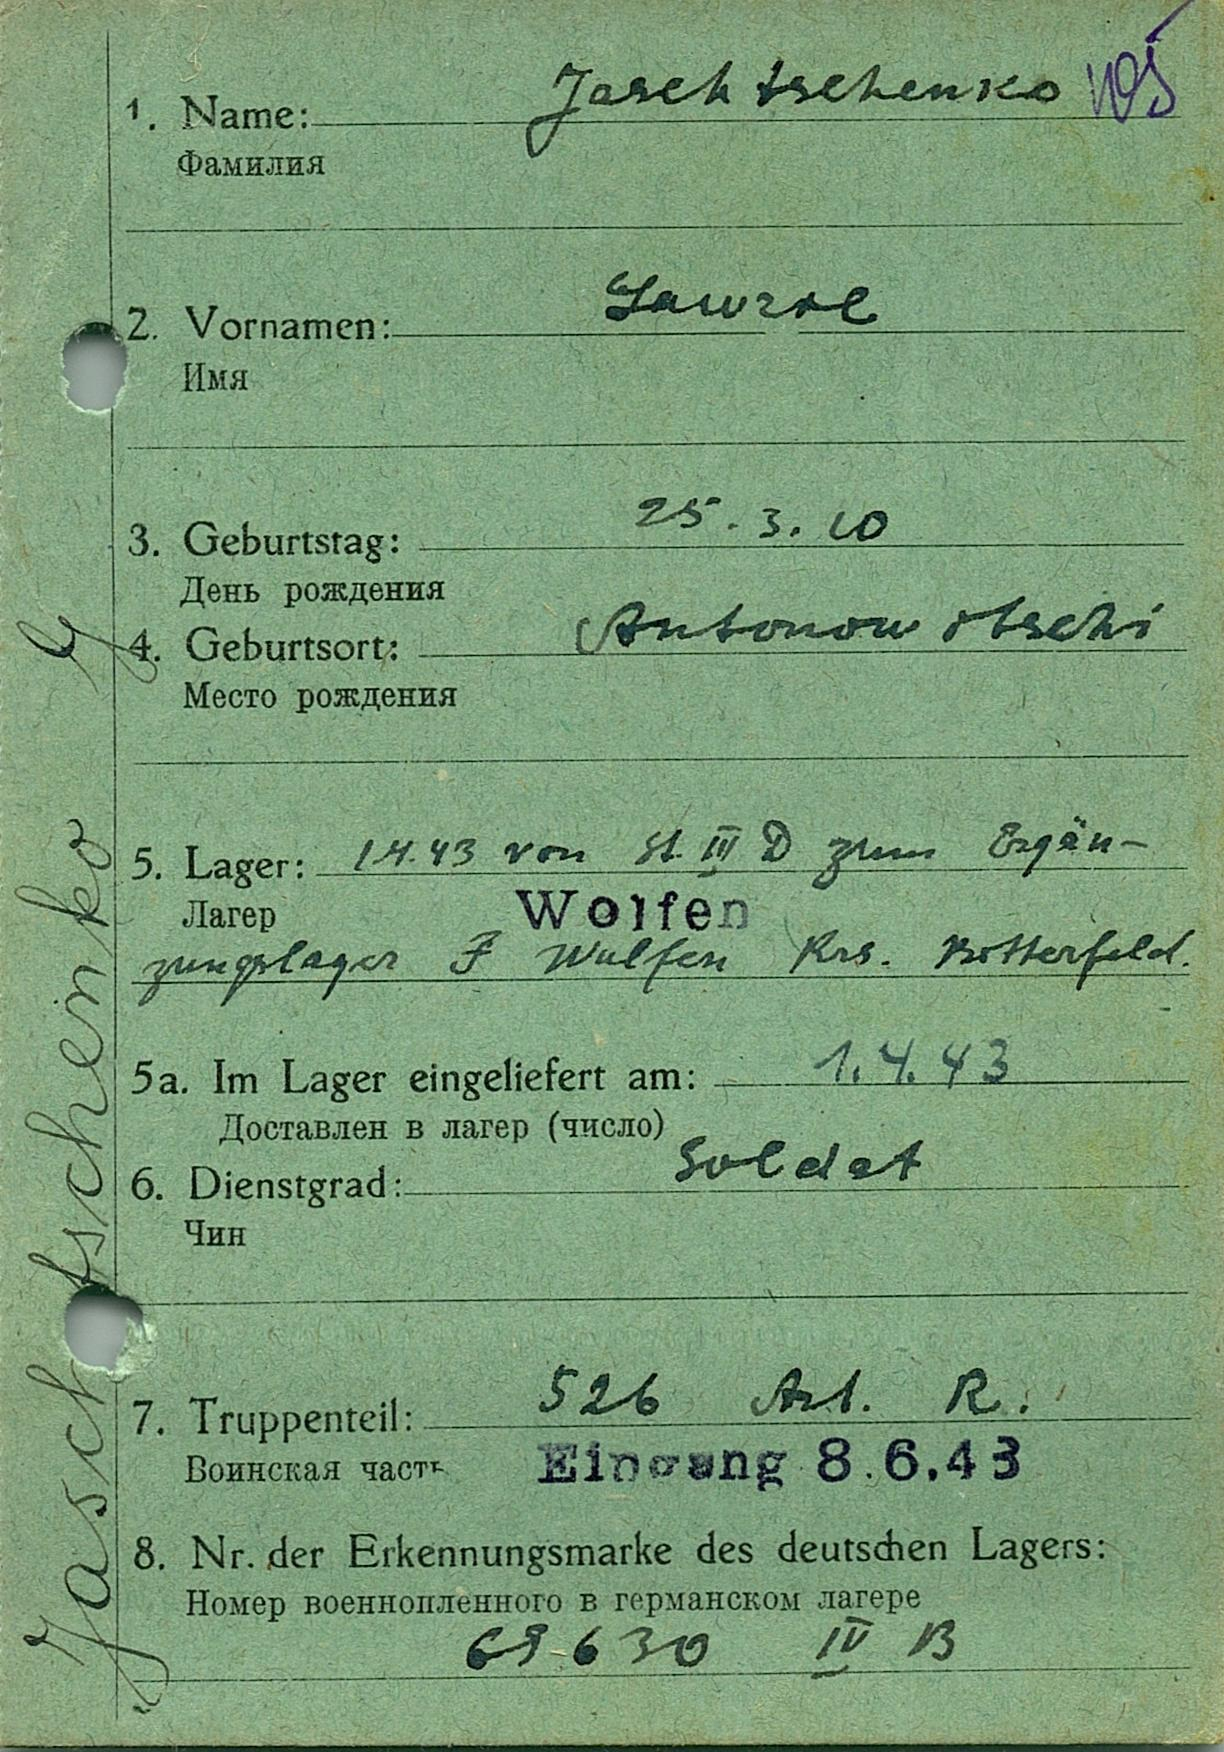 1. Name: Jaschtschenko
Фамилия
2. Vornamen:
Имя
3. Geburtstag: 25.3.10
День рождения
4. Geburtsort: Antonowotschi
Место рождения
5. Lager: 1.4.43 von St. III D zum Ergän-
Лагер Wolfen
zungslager F Wolfen Krs. Bitterfeld.
5a. Im Lager eingeliefert am: 1.4.43
Доставлен в лагер (число)
6. Dienstgrad: Soldat
Чин
7. Truppenteil: 526 Art. R.
Воинская часть Eingang 8.6.43
8. Nr. der Erkennungsmarke des deutschen Lagers:
Номер военнопленного в германском лагере
69630 IV B
Jaschtschenko